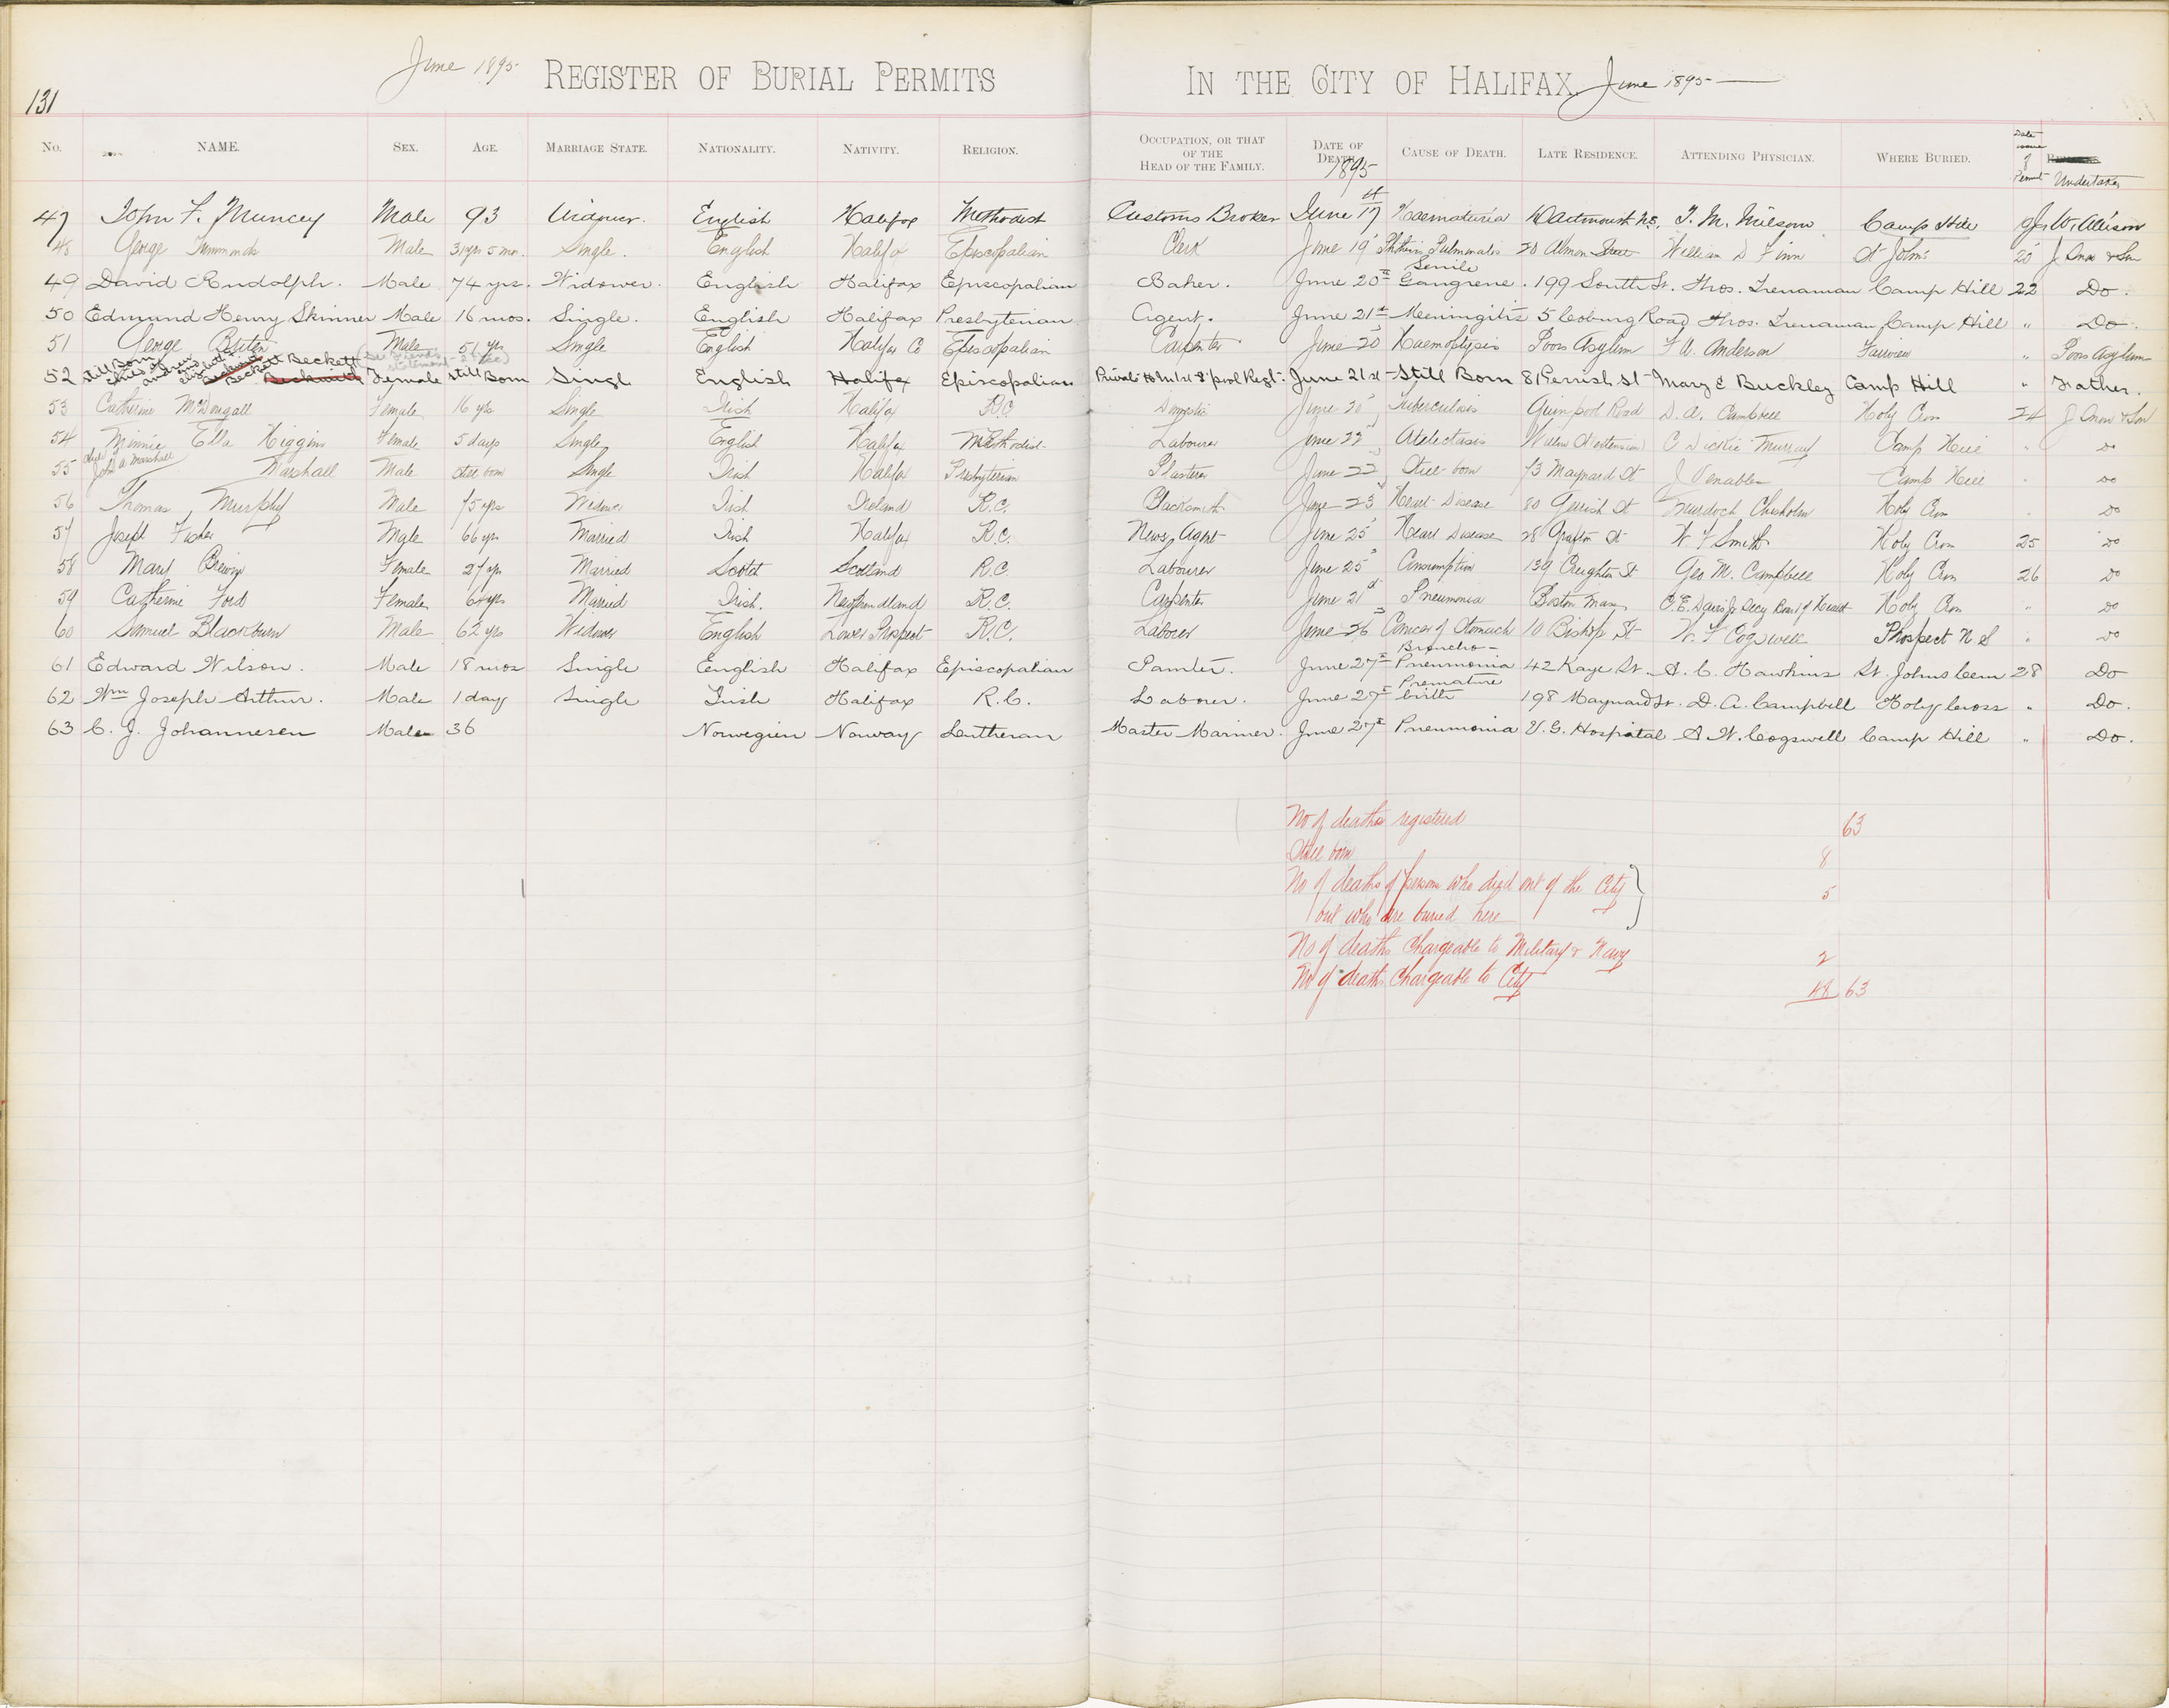 June 1895 REGISTER OF BURIAL PERMITS IN THE CITY OF HALIFAX. June 1895
131
No. NAME. SEX. AGE. MARRIAGE STATE. NATIONALITY. NATIVITY. RELIGION. OCCUPATION, OR THAT OF THE HEAD OF THE FAMILY. DATE OF DEATH. 1895 CAUSE OF DEATH. LATE RESIDENCE. ATTENDING PHYSICIAN. WHERE BURIED. Date issue of Permit Undertaker
47 John F. Muncey Male 93 Widower. English Halifax Methodist Customs Broker June 17th Haematuria Dartmouth N.S. T. M. Milsom Camp Hill W. Allison
48 George Male 31 yrs 5 mo. Single. English Halifax Episcopalian Clerk June 19 Phthisis Pulmonalis 20 Almon Street William D Finn St Johns 20 J Snow & Son
49 David Rudolph. Male 74 yrs. Widower. English Halifax Episcopalian Baker. June 20th Senile Gangrene. 199 South St. Thos. Trenaman Camp Hill 22 Do.
50 Edmund Henry Skinner Male 16 mos. Single. English Halifax Presbyterian Agent. June 21st Meningitis 5 Coburg Road Thos. Trenaman Camp Hill " Do.
51 George Male 51 yrs Single English Halifax Co Episcopalian Carpenter June 20 Haemoptysis Poors Asylum F W. Anderson Fairview " Poors Asylum
52 Still Born child of Andrew and Elizabeth Beckett Beckett Female Still Born Singl English Halifax Episcopalian Private June 21st Still Born 81 Gerrish St Mary E Buckley Camp Hill " Father.
53 Catherine McDougall Female 16 yrs Single Irish Halifax R.C. Domestic June 20 Tuberculosis Quinpool Road D. A. Campbell Holy Cross 24 J Snow & Son
54 Minnie Ella Higgins Female 5 days Single English Halifax Methodist Labourer June 22 Atelectasis C Dickie Murray Camp Hill " Do
55 child of John A Marshall Marshall Male Still born Single Irish Halifax Presbyterian Plasterer June 22 Still born 73 Maynard St J Venables Camp Hill " Do
56 Thomas Murphy Male 75 yrs Widower Irish Ireland R.C. Blacksmith June 23 Heart Disease 80 Gerrish St Murdoch Chisholm Holy Cross " Do
57 Joseph Fisher Male 66 yrs Married Irish Halifax R.C. News Agent June 25 Heart Disease 28 Grafton St W. F Smith Holy Cross 25 Do
58 Mary Female 27 yrs Married Scotch Scotland R.C. Labourer June 25 Consumption 139 Creighton St Geo M. Campbell Holy Cross 26 Do
59 Catherine Ford Female Married Irish. Newfoundland R.C. Carpenter June 21st Pneumonia Boston Mass C. E. Davis Jr Secy Board of Health Holy Cross " Do
60 Samuel Blackburn Male 62 yrs Widower English Lower Prospect R.C. Laborer June 26 Cancer of Stomach 10 Bishop St W. F Cogswell Prospect N S " Do
61 Edward Wilson. Male 18 mos Single English Halifax Episcopalian Painter. June 27th Broncho-Pneumonia 42 Kaye St. A. C. Hawkins St. Johns Cem 28 Do
62 Wm Joseph Arthur. Male 1 day Single Irish Halifax R.C. Laborer. June 27th Premature birth 198 Maynard St. D. A. Campbell Holy Cross " Do.
63 C. J. Johannesen Male 36 Norwegien Norway Lutheran Master Mariner. June 27th Pneumonia V. G. Hospital A W. Cogswell Camp Hill " Do.
No of deaths registered 63
Still born 8
No of deaths of persons who died out of the City
but who are buried here 5
No of deaths Chargeable to Military & Navy 2
No of deaths Chargeable to City 48 63